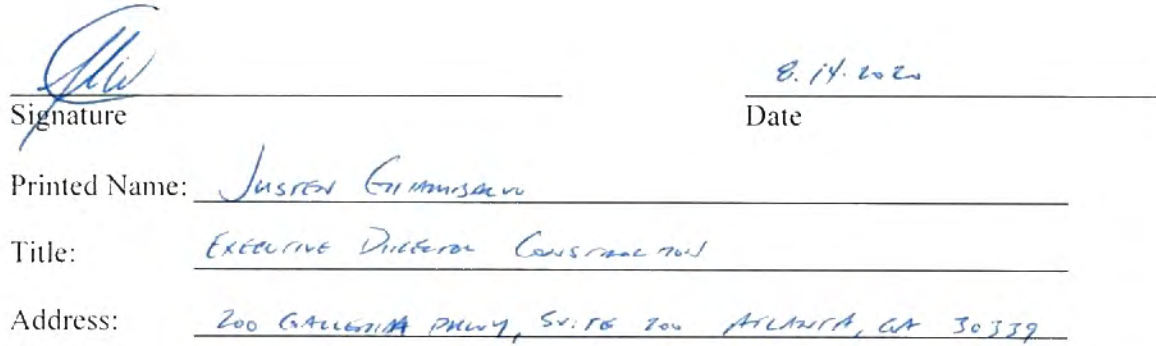 8.14.2020
Signature Date
Printed Name: Justen
Title: Executive Director Construction
Address: 200 GALLERIA PKWY, SUITE 200 ATLANTA, GA 30339